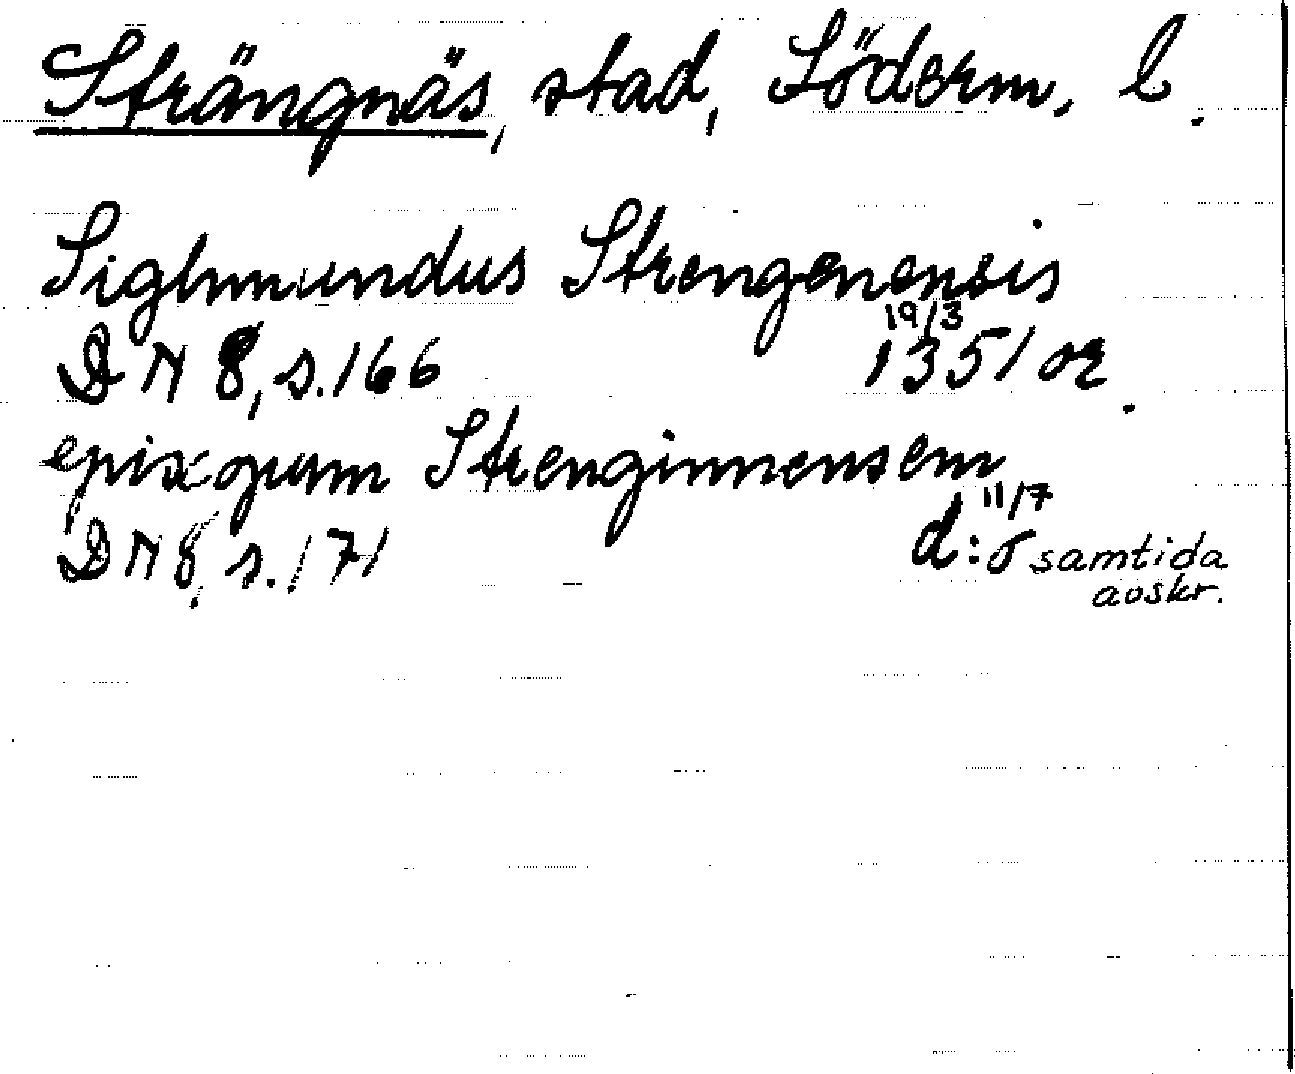 Strängnäs, stad, Söderm. l.
Sighmundus Strengenensis
DN 8, s. 166 19/3 1351 or.
episcopum Strenginnensem
DN 8, s. 171 d:o 11/7 samtida
avskr.